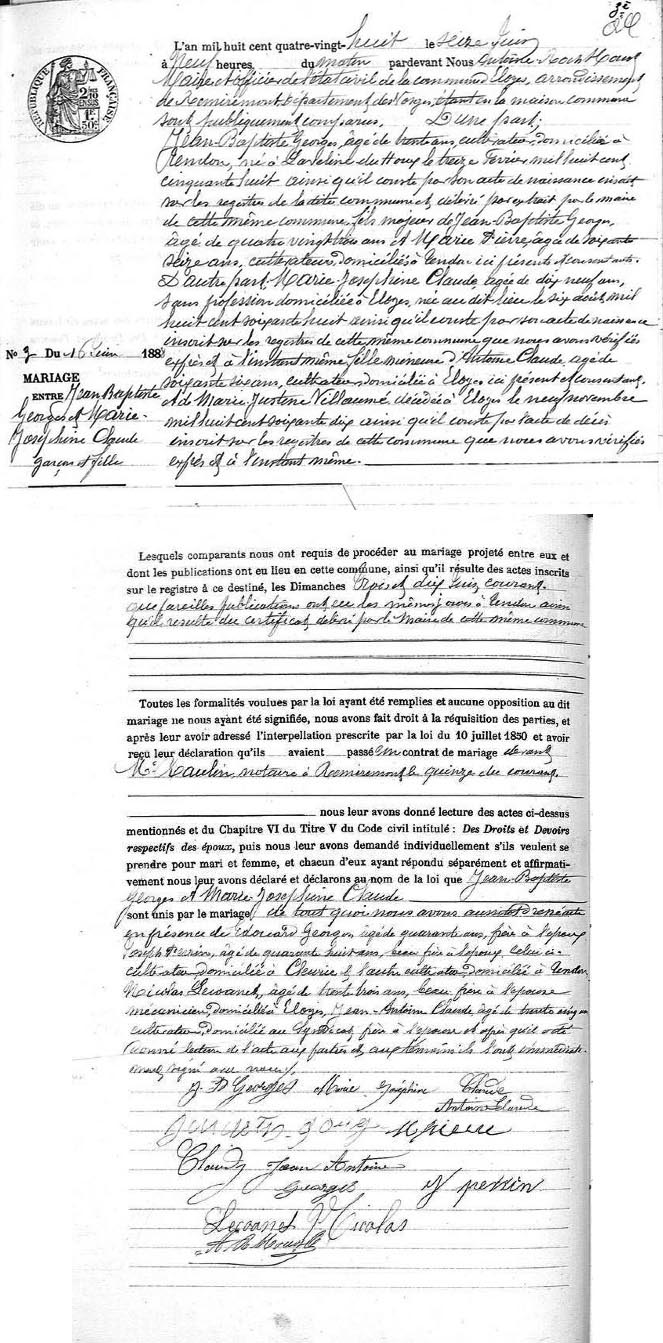 24
L'an mil huit cent quatre-vingt-huit le seize Juin
à Neuf heures, du matin pardevant Nous Antoine
Maire et officier de l'état civil de la commune d'Eloyes, arrondissement
de Remiremont Département des Vosges, étant en la maison commune
sont publiquement comparus, D'une part,
Jean-Baptiste Georges, âgé de trente ans, cultivateur, domicilié à
Tendon, né à Laveline du Houx le treize Février mil huit cent
cinquante huit ainsi qu'il conste par son acte de naissance inscrit
sur les registres de la dite commune et délivré par extrait par le maire
de cette même commune, fils majeur de Jean-Baptiste Georges,
âgé de quatre vingt trois ans et Marie Pierre, âgée de soixante
seize ans, cultivateurs domiciliés à Tendon ici présents et consentants.
D'autre part Marie Joséphine Claude, agée de dix neuf ans,
sans profession domiciliée à Eloyes, née au dit lieu le six août mil
huit cent soixante huit ainsi qu'il conste par son acte de naissance
inscrit sur les registres de cette même commune que nous avons vérifiés
exprès et à l'instant même, fille mineure d'Antoine Claude, agé de
soixante six ans, cultivateur domicilié à Eloyes ici présent et consentant,
et de Marie Justine Villaumé, décédée à Eloyes le neuf novembre
mil huit cent soixante dix ainsi qu'il conste par l'acte de décès
inscrit sur les registres de cette commune que nous avons vérifiés
exprès et à l'instant même.
RÉPUBLIQUE FRANÇAISE
No 9 Du 16 Juin 1888
MARIAGE
ENTRE Jean Baptiste
Georges et Marie-
Joséphine Claude
garçon et fille
Lesquels comparants nous ont requis de procéder au mariage projeté entre eux et
dont les publications ont eu lieu en cette commune, ainsi qu'il résulte des actes inscrits
sur le registre à ce destiné, les Dimanches trois et dix Juin courant.
que pareilles publications ont eu les mêmes jours à Tendon ainsi
qu'il résulte du certificat délivré par le Maire de cette même commune
Toutes les formalités voulues par la loi ayant été remplies et aucune opposition au dit
mariage ne nous ayant été signifiée, nous avons fait droit à la réquisition des parties, et
après leur avoir adressé l'interpellation prescrite par la loi du 10 juillet 1850 et avoir
reçu leur déclaration qu'ils avaient passé un contrat de mariage devant
Me notaire à Remiremont le quinze du courant.
nous leur avons donné lecture des actes ci-dessus
mentionnés et du Chapitre VI du Titre V du Code civil intitulé : Des Droits et Devoirs
respectifs des époux, puis nous leur avons demandé individuellement s'ils veulent se
prendre pour mari et femme, et chacun d'eux ayant répondu séparément et affirmati-
vement nous leur avons déclaré et déclarons au nom de la loi que Jean-Baptiste
Georges et Marie Joséphine Claude
sont unis par le mariage, de tout quoi nous avons aussitôt dressé acte
en présence de Edouard Georges, âgé de quarante ans, frère à l'époux
Joseph Perrin, âgé de quarante huit ans, beau frère à l'époux, celui ci
cultivateur domicilié à Cleurie et l'autre cultivateur domicilié à Tendon
Nicolas Lecoanet, âgé de trente trois ans, beau frère à l'épouse
mécanicien, domicilié à Eloyes, Jean-Antoine Claude, âgé de trente cinq ans
cultivateur, domicilié au Syndicat, frère à l'épouse et après qu'il a été
donné lecture de l'acte aux parties et aux témoins ils l'ont
signé avec nous.
J. B Georges Marie Joséphine Claude
Antoine Claude
M pierre
Claude Jean Antoine
Georges J perrin
Lecoanet Nicolas